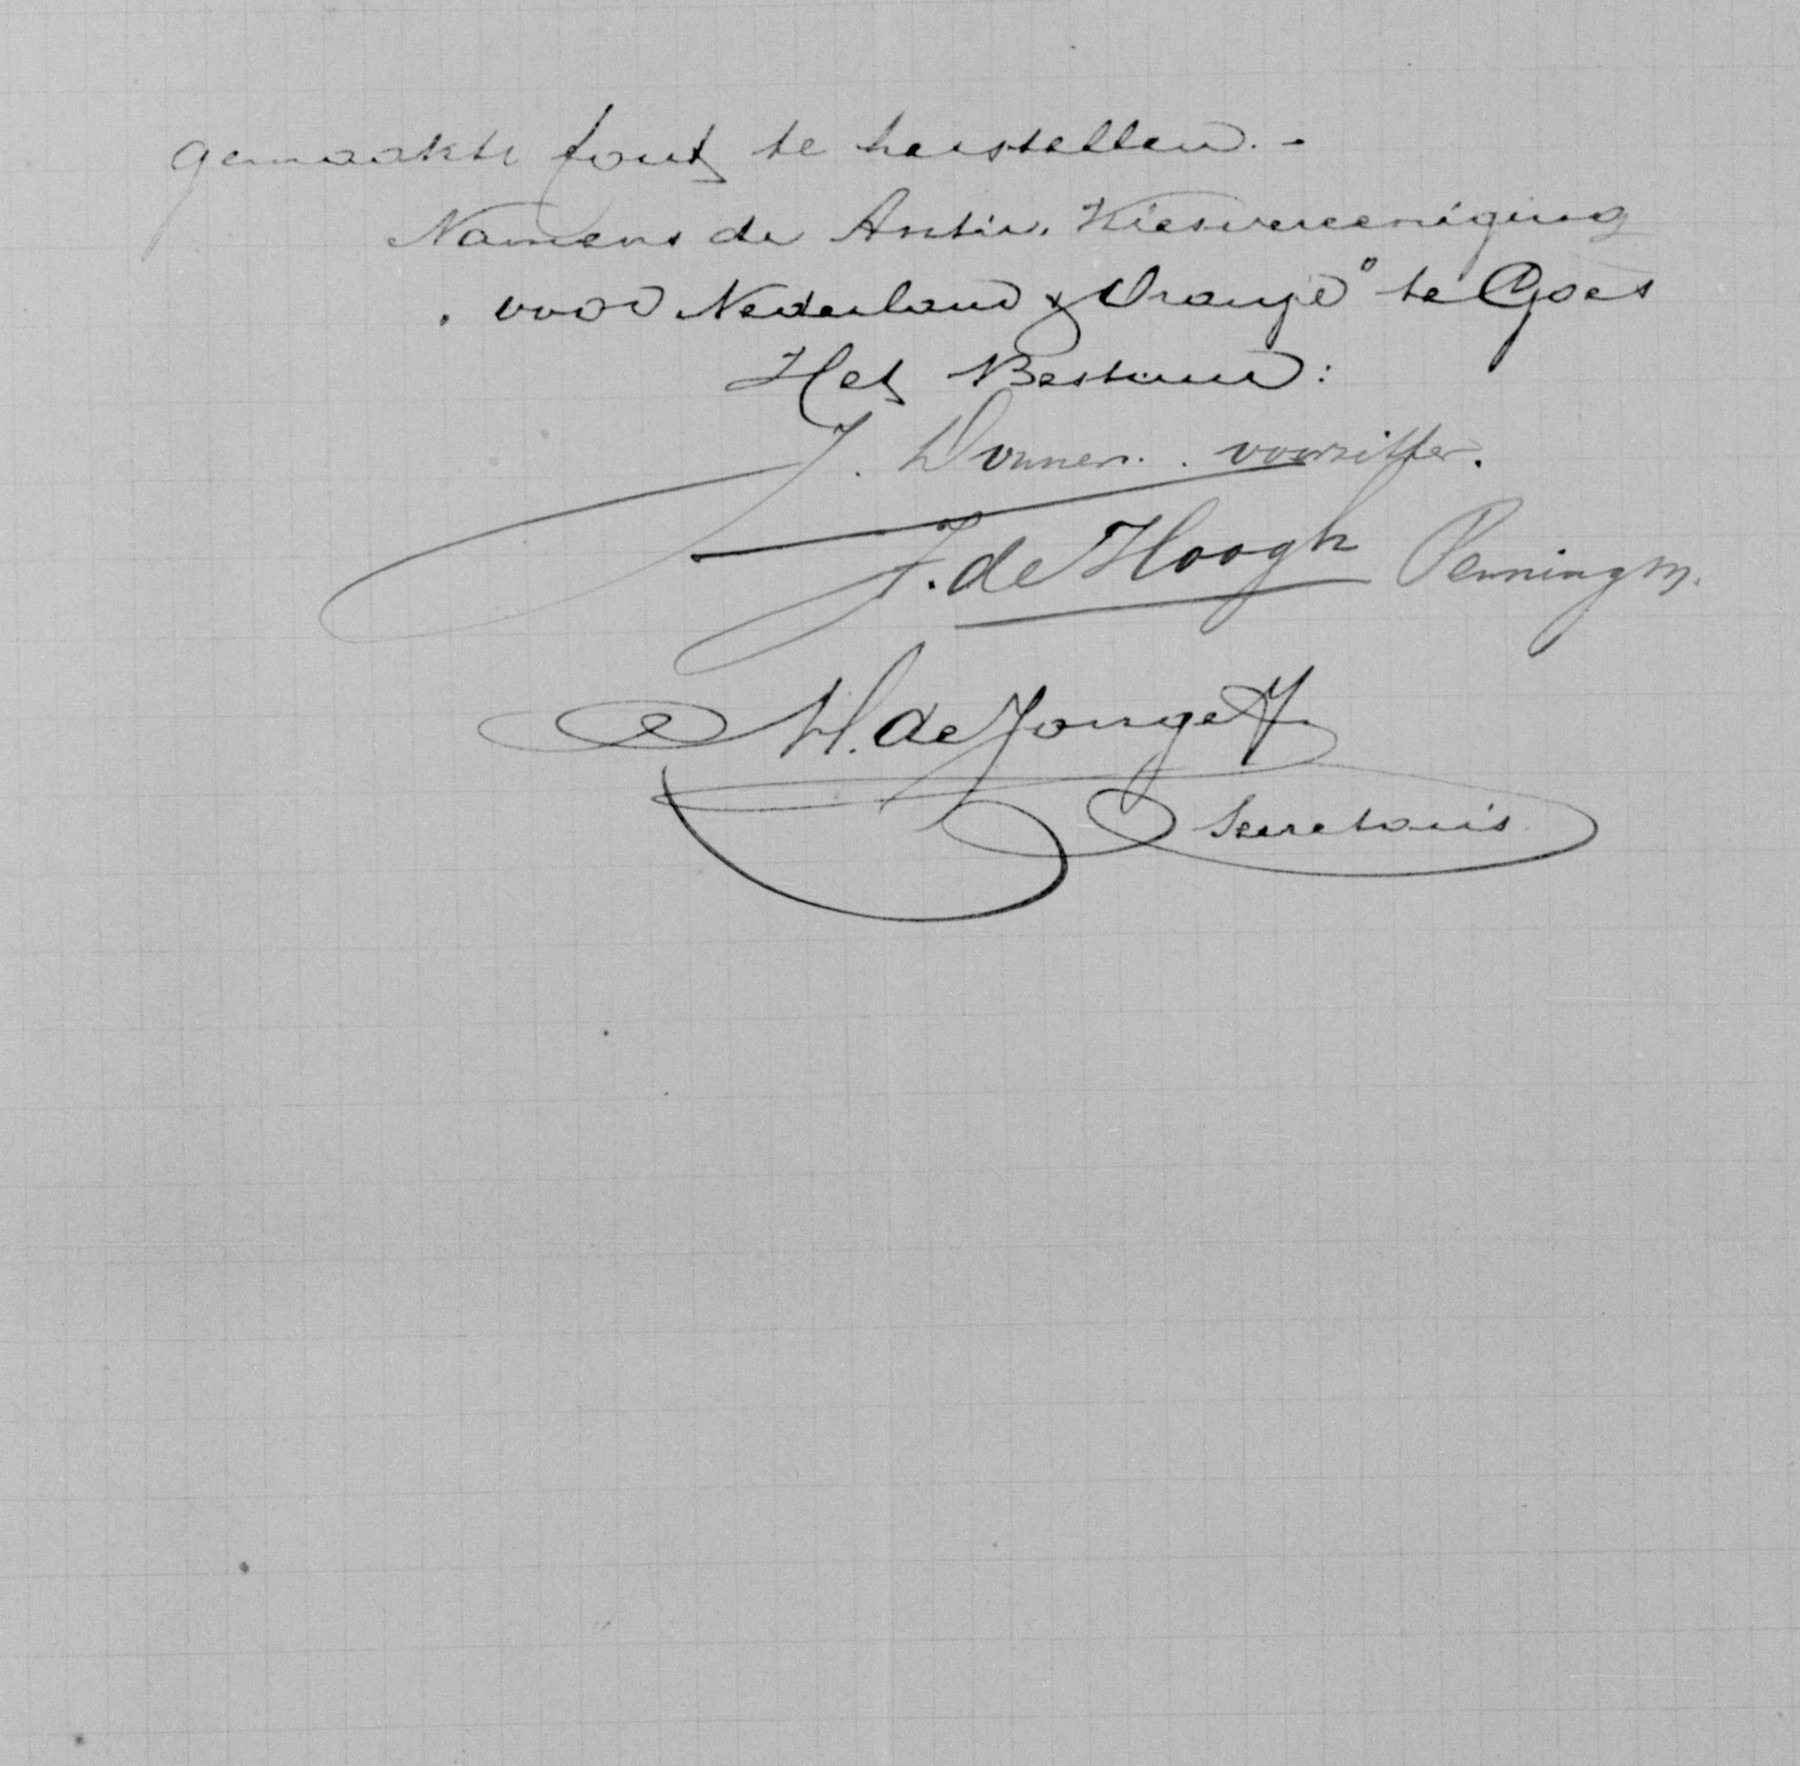 gemaakte fout te herstellen. -
Namens de Antir. Kiesvereeniging
„ voor Nederland & Oranje" te Goes
Het Bestuur:
J. Donner. voorzitter.
J. de Hoogh Penningm.
H. de Jonge
Secretaris